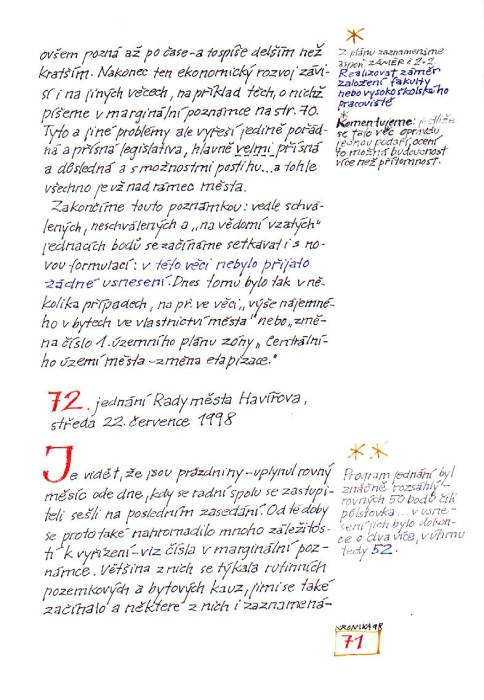 ovšem pozná až po čase - a to spíše delším než
kratším. Nakonec ten ekonomický rozvoj závi-
sí i na jiných věcech, na příklad těch, o nichž
píšeme v marginální poznámce na str. 70.
Tyto a jiné problémy ale vyřeší jedině pořád-
ná a přísná legislativa, hlavně velmi přísná
a důsledná a s možnostmi postihu... a tohle
všechno je už nad rámec města.
Zakončíme touto poznámkou: vedle schvá-
lených, neschválených a „na vědomí vzatých"
jednacích bodů se začínáme setkávat i s no-
vou formulací: v této věci nebylo přijato
žádné usnesení. Dnes tomu bylo tak v ně-
kolika případech, na př. ve věci „výše nájemné-
ho v bytech ve vlastnictví města" nebo „změ-
na číslo 1. územního plánu zóny „ Centrální-
ho území města - změna etapizace."
72. jednání Rady města Havířova,
středa 22. července 1998
Je vidět, že jsou prázdniny - uplynul rovný
měsíc ode dne, kdy se radní spolu se zastupi-
teli sešli na posledním zasedání. Od té doby
se proto také nahromadilo mnoho záležitos-
tí k vyřízení - viz čísla v marginální poz-
námce. Většina z nich se týkala rutinních
pozemkových a bytových kauz, jimi se také
začínalo a některé z nich i zaznamená-
*
Z plánu zaznamenáme
aspeň ZÁMĚR č. 2.2.
Realizovat záměr
založení fakulty
nebo vysokoškolského
pracoviště
*
Komentujeme: jestliže
se tato věc opravdu
jednou podaří, ocení
to možná budoucnost
více než přítomnost.
**
Program jednání byl
značně rozsáhlý -
rovných 50 bodů čili
půlstovka... v usne-
sení jich bylo dokon-
ce o dva více, v úhrnu
tedy 52.
KRONIKA 98
71